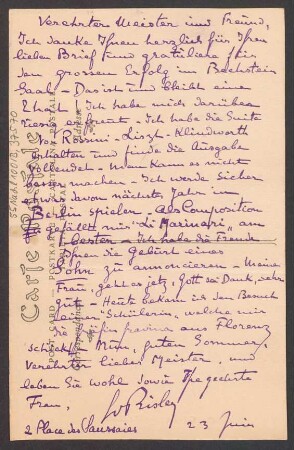 Verehrter Meister und Freund,
Ich danke Ihnen herzlich für Ihren
lieben Brief und gratuliere für
den grossen Erfolg im Bechstein
Saal - Das ist und bleibt eine
That - Ich habe mich darüber
riesig erfreut - Ich habe die Suite
von Rossini - Liszt - Klindworth
erhalten und finde die Ausgabe
vollendet - Man kann es nicht
besser machen - Ich werde sicher
etwas davon nächstes Jahr in
Berlin spielen - Als Composition
gefällt mir "Li Marinari" am
besten - Ich habe die Freude
Ihnen die Geburt eines
Sohn zu annoncieren - Meiner
Frau geht es jetz, Gott sei Dank, sehr
gut - Heute bekam ich den Besuch
einer "Schülerin", welche mir
die Gräfin aus Florenz
schickt - Nun, guten Sommer,
verehrter lieber Meister, und
leben Sie wohl sowie Ihre geehrte
Frau,
Ed Risler
2 Place des Saussaies 23 Juin
Carte Postale
POST CARD - POSTKARTE
55 Nachl 100/B, 37570